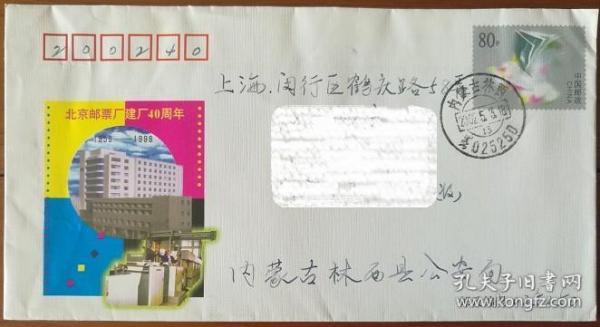 200240
80分
中国邮政
CHINA
上海.闵行区鹤庆路58
内蒙古林西
2002.5.3
025250
北京邮票厂建厂40周年
1959 1999
内蒙古林西县公安局
孔夫子旧书网
www.kongfz.com